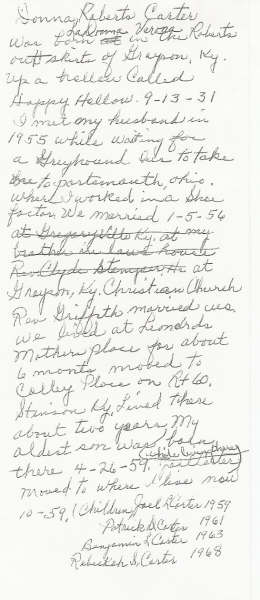 Donna Roberts Carter
was born at Donna Verona in the Roberts
outskirts of Grayson, Ky.
up a hollow Called
Happy Hollow. 9-13-31
I met my husband in
1955 while waiting for
a Greyhound Bus to take
me to portsmouth, ohio.
where I worked in a Shoe
factor. We married 1-5-56
at Gregoryville Ky. at my
brother in laws house
Rev Clyde Stamper. He at
Grayson, Ky. Christian Church
Rev. Griffith married us.
We lived at Leonards
Mothers place for about
6 months, moved to
Colley Place on Rt 60.
Stinson Ky, Lived there
about two years. My
oldest son was born
there 4-26-59.
moved to where I live now
10-59. (Children, Joel R Carter 1959
Patrick D. Carter 1961
Benjamin L Carter 1963
Rebeckah S. Carter 1968